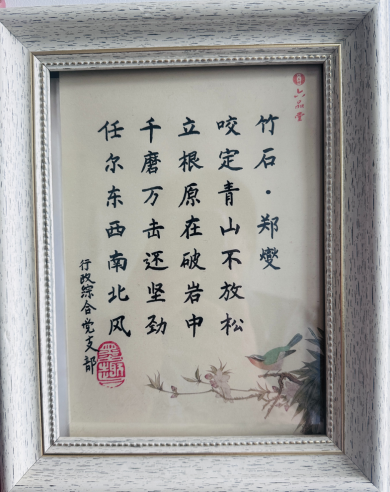 竹石·郑燮
咬定青山不放松
立根原在破岩中
千磨万击还坚劲
任尔东西南北风
行政综合党支部
六品堂